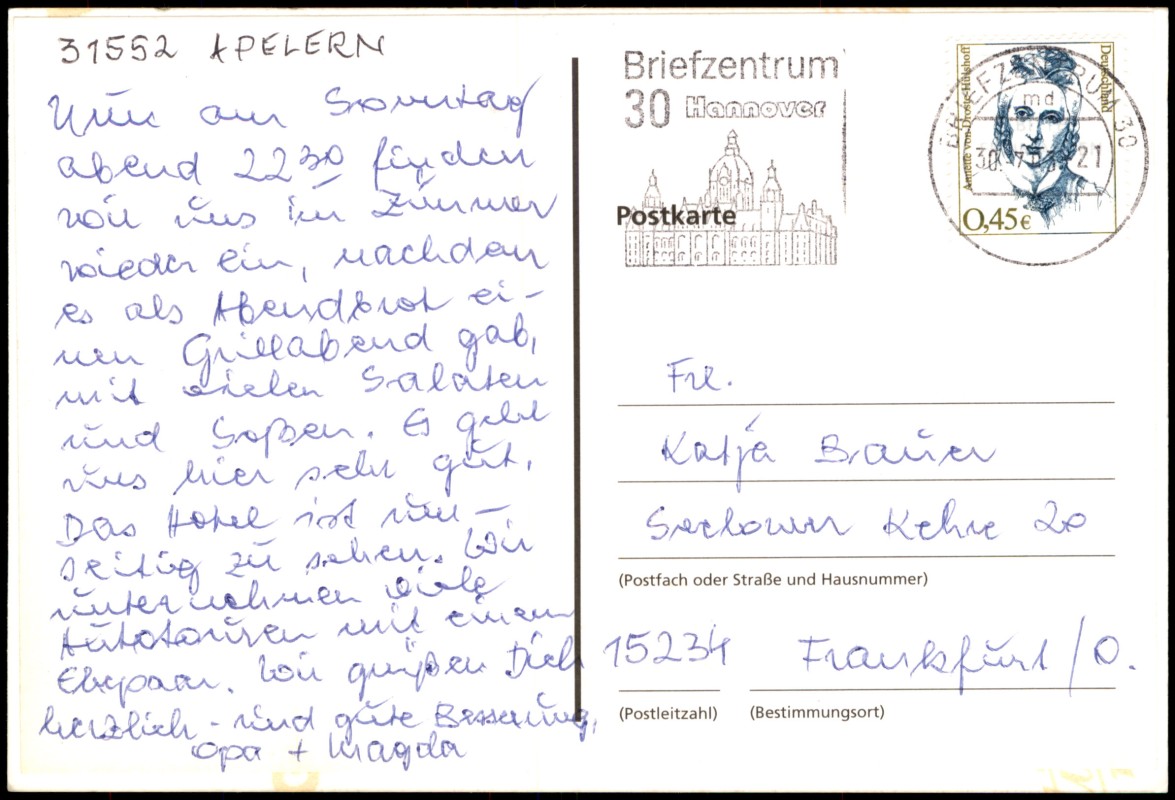 31552 APELERN
Nun am Sonntag
abend 22 30 finden
wir uns im Zimmer
wieder ein, nachdem
es als Abendbrot ei-
nen Grillabend gab,
mit vielen Salaten
und Soßen. Es geht
uns hier sehr gut.
Das Hotel ist um-
seitig zu sehen. Wir
unternehmen viele
Autotouren mit einem
Ehepaar. Wir grüßen Dich
herzlich - und gute Besserung,
Opa + Magda
Briefzentrum
30 Hannover
Postkarte
BRIEFZENTRUM 30
md
21
Annette von Droste-Hülshoff
Deutschland
0,45€
Frl.
Katja Brauer
Seelower Kehre 20
(Postfach oder Straße und Hausnummer)
15234 Frankfurt/O.
(Postleitzahl) (Bestimmungsort)